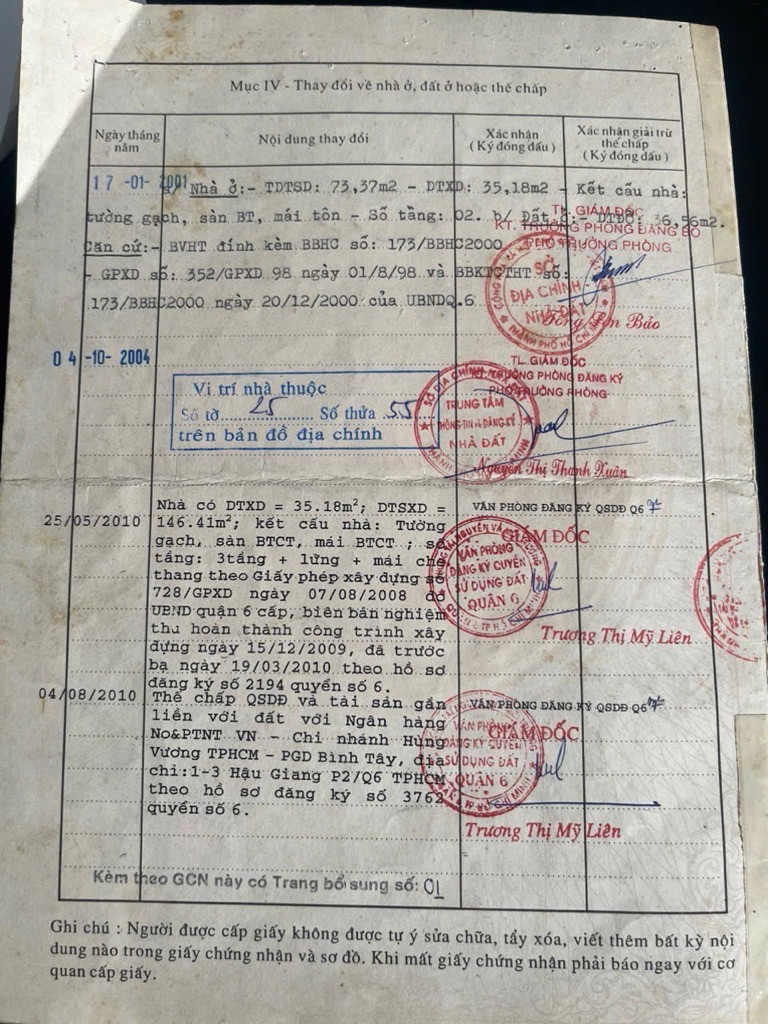 Mục IV - Thay đổi về nhà ở, đất ở hoặc thế chấp
Ngày tháng năm
Nội dung thay đổi
Xác nhận
( Ký đóng dấu )
Xác nhận giải trừ thế chấp
( Ký đóng dấu )
17 -01- 2001
a/ Nhà ở:- TDTSD: 73,37m2 - DTXD: 35,18m2 - Kết cấu nhà:
tường gạch, sàn BT, mái tôn - Số tầng: 02. b/ Đất ở:- DTĐO: 36,56m2.
Căn cứ:- BVHT đính kèm BBHC số: 173/BBHC2000
- GPXD số: 352/GPXD 98 ngày 01/8/98 và BBKTCTHT số:
173/BBHC2000 ngày 20/12/2000 của UBNDQ.6
TL. GIÁM ĐỐC
KT. TRƯỞNG PHÒNG ĐĂNG BỘ
PHÓ TRƯỞNG PHÒNG
SỞ
ĐỊA CHÍNH
NHÀ ĐẤT
THÀNH PHỐ HỒ CHÍ MINH
Bảo
04 -10- 2004
Vi trí nhà thuộc
Số tờ 25 Số thửa 55
trên bản đồ địa chính
TL. GIÁM ĐỐC
KT. TRƯỞNG PHÒNG ĐĂNG KÝ
PHÓ TRƯỞNG PHÒNG
TRUNG TÂM
THÔNG TIN và ĐĂNG KÝ
NHÀ ĐẤT
Nguyễn Thị Thanh Xuân
25/05/2010
Nhà có DTXD = 35.18m²; DTSXD =
146.41m²; kết cấu nhà: Tường
gạch, sàn BTCT, mái BTCT ; số
tầng: 3tầng + lửng + mái che
thang theo Giấy phép xây dựng số
728/GPXD ngày 07/08/2008 do
UBND quận 6 cấp, biên bản nghiệm
thu hoàn thành công trình xây
dựng ngày 15/12/2009, đã trước
bạ ngày 19/03/2010 theo hồ sơ
đăng ký số 2194 quyển số 6.
VĂN PHÒNG ĐĂNG KÝ QSDĐ Q6
GIÁM ĐỐC
VĂN PHÒNG
ĐĂNG KÝ QUYỀN
SỬ DỤNG ĐẤT
QUẬN 6
Trương Thị Mỹ Liên
04/08/2010
Thế chấp QSDĐ và tài sản gắn
liền với đất với Ngân hàng
No&PTNT VN - Chi nhánh Hùng
Vương TPHCM - PGD Bình Tây, địa
chỉ:1-3 Hậu Giang P2/Q6 TPHCM
theo hồ sơ đăng ký số 3762
quyển số 6.
VĂN PHÒNG ĐĂNG KÝ QSDĐ Q6
GIÁM ĐỐC
VĂN PHÒNG
ĐĂNG KÝ QUYỀN
SỬ DỤNG ĐẤT
QUẬN 6
Trương Thị Mỹ Liên
Kèm theo GCN này có Trang bổ sung số: 01
Ghi chú : Người được cấp giấy không được tự ý sửa chữa, tẩy xóa, viết thêm bất kỳ nội
dung nào trong giấy chứng nhận và sơ đồ. Khi mất giấy chứng nhận phải báo ngay với cơ
quan cấp giấy.